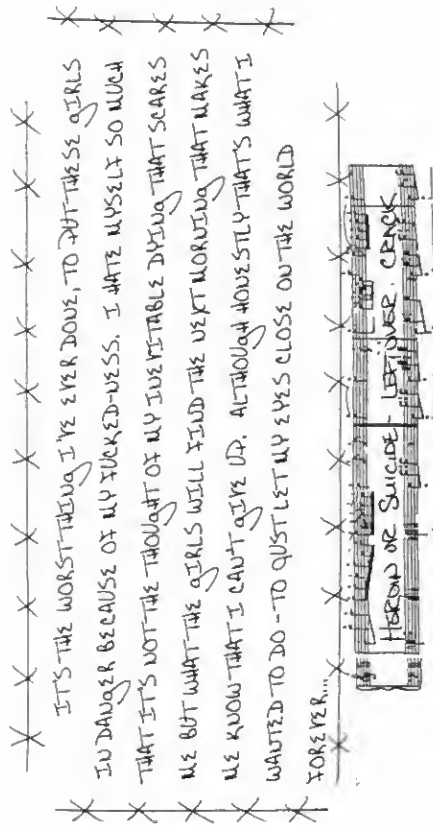 IT'S THE WORST THING I'VE EVER DONE, TO PUT THESE GIRLS
IN DANGER BECAUSE OF MY FUCKED-NESS. I HATE MYSELF SO MUCH
THAT IT'S NOT THE THOUGHT OF MY INEVITABLE DYING THAT SCARES
ME BUT WHAT THE GIRLS WILL FIND THE NEXT MORNING THAT MAKES
ME KNOW THAT I CAN'T GIVE UP. ALTHOUGH HONESTLY THAT'S WHAT I
WANTED TO DO - TO JUST LET MY EYES CLOSE ON THE WORLD
FOREVER...
HEROIN OR SUICIDE - LEFTOVER CRACK